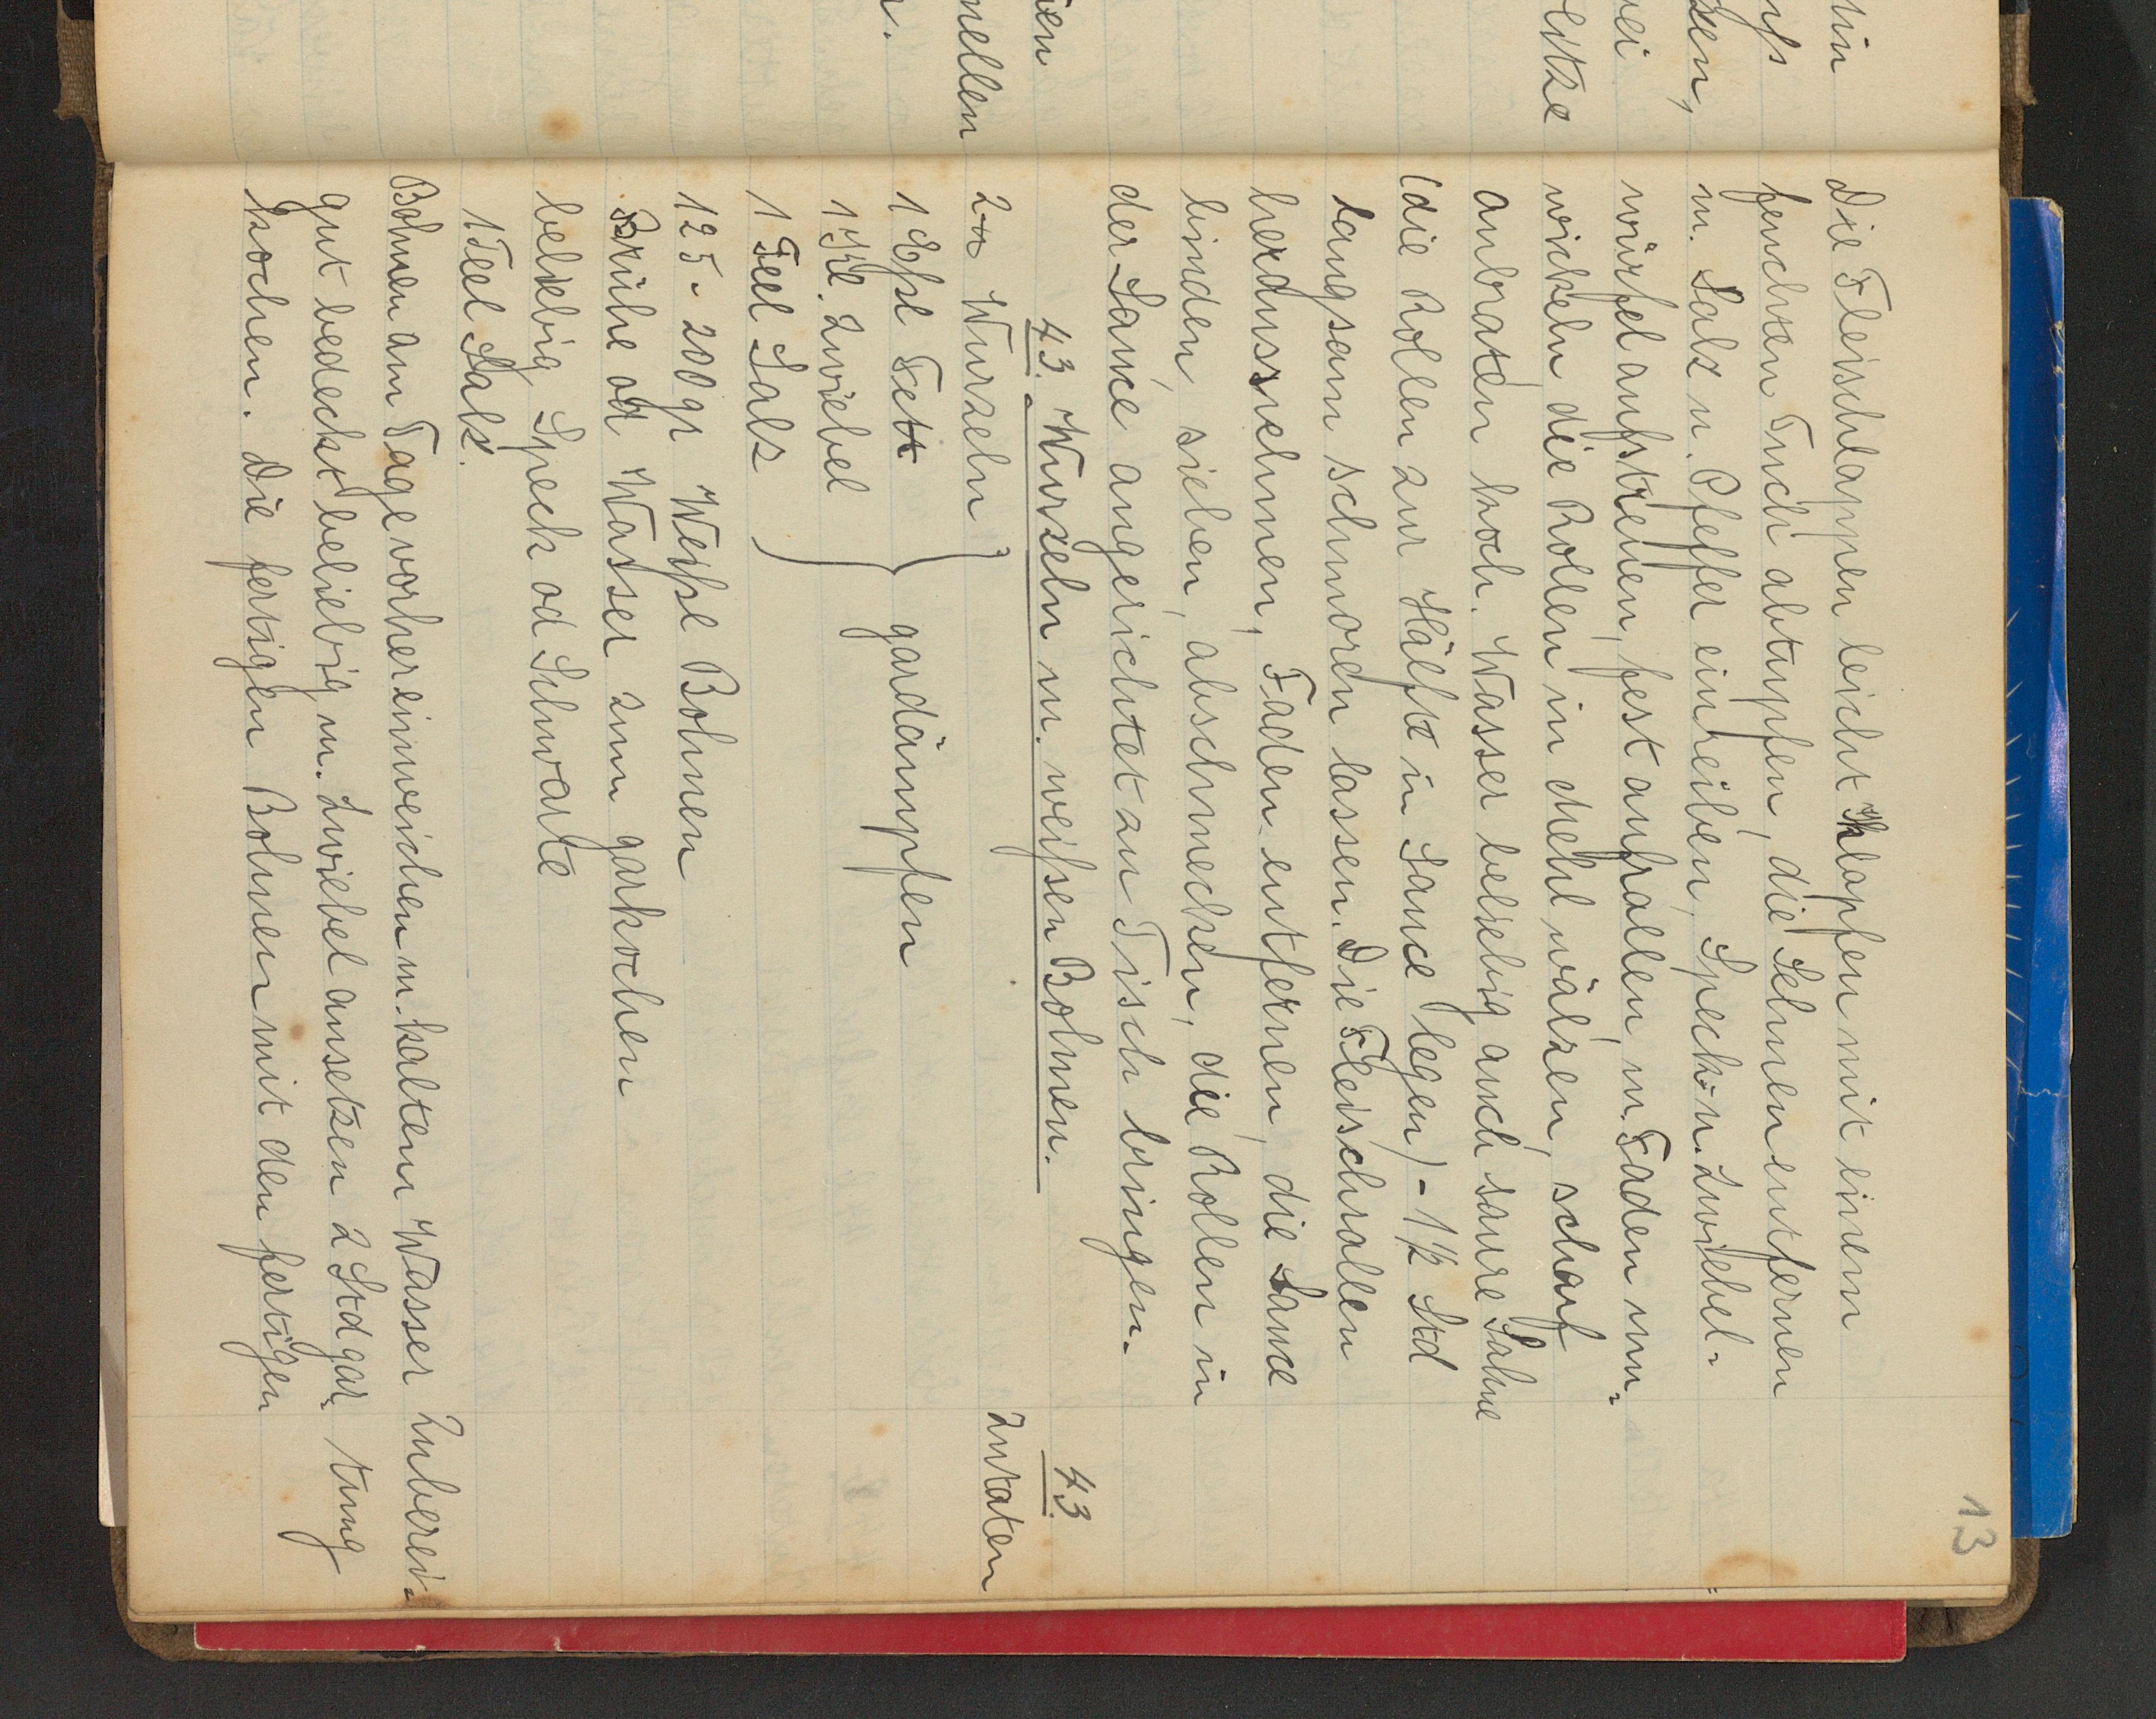 13
Die Fleischlappen leicht klopfen mit einem
feuchten Tuch abtupfen, die Sehnen entfernen
m. Salz u. Pfeffer einreiben, Speck- u. Zwiebel-
würfel aufstreuen, fest aufrollen, m. Faden um-
wickeln die Rollen in Mehl wälzen, scharf
anbraten koch. Wasser beliebig auch saure Sahne
(die Rollen zur Hälfte in Sauce legen) - 1½ Std
langsam schmoren lassen. Die Fleischrollen
herausnehmen, Faden entfernen, die Sauce
binden, sieben, abschmecken, die Rollen in
der Sauce angerichtet zu Tisch bringen.
43. Wurzeln m. weißen Bohnen. 43.
2 ℔ Wurzeln Zutaten
1 Eßl Fett
1 Kl. Zwiebel } gardämpfen
1 Teel Salz
125 - 200 gr Weiße Bohnen
Brühe od Wasser zum garkochen
beliebig Speck od Schwarte
1 Teel Salz.
Bohnen am Tage vorher einweichen m. kaltem Wasser Zuberei-
gut bedeckt beliebig m. Zwiebel ansetzen 2 Std gar- tung
kochen. Die fertigen Bohnen mit den fertigen